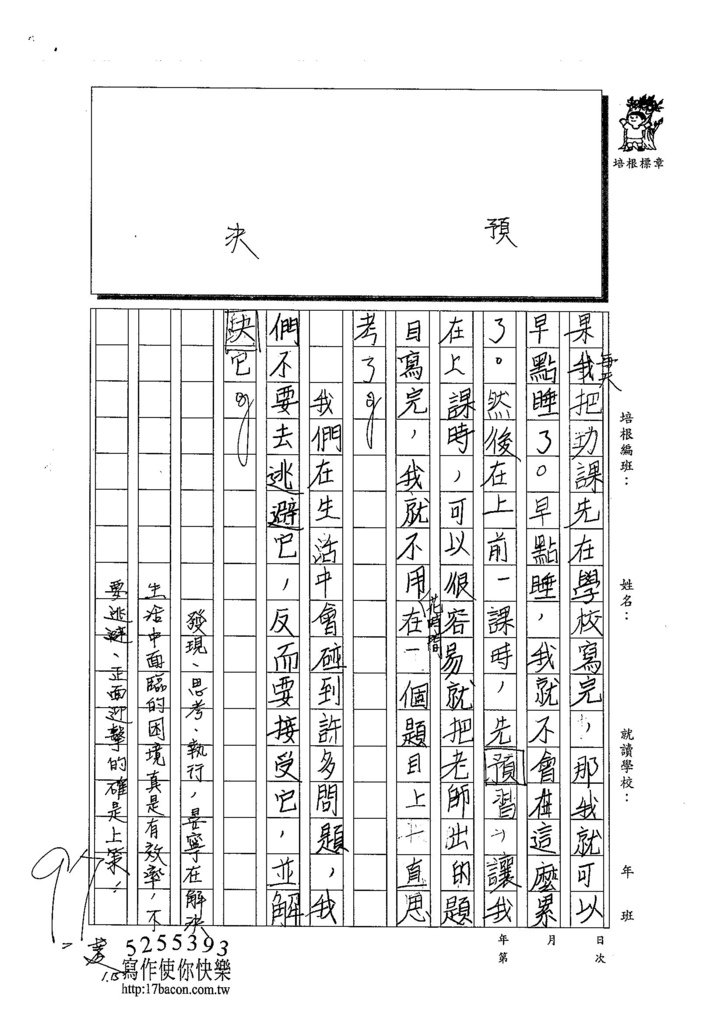 培根標章
預
決
培根編班：
姓名：
就讀學校：
年 班
果我每天把功課先在學校寫完，那我就可以
早點睡了。早點睡，我就不會在這麼累
了。然後在上前一課時，先預習，讓我
在上課時，可以很容易就把老師出的題
目寫完，我就不用花時間在一個題目上一直思
考了。
我們在生活中會碰到許多問題，我
們不要去逃避它，反而要接受它，並解
決它。
發現、思考、執行，昱寧在解決
生活中面臨的困境真是有效率，不
要逃避、正面迎擊的確是上策！
年 月 日
第 次
5255393
寫作使你快樂
http:17bacon.com.tw